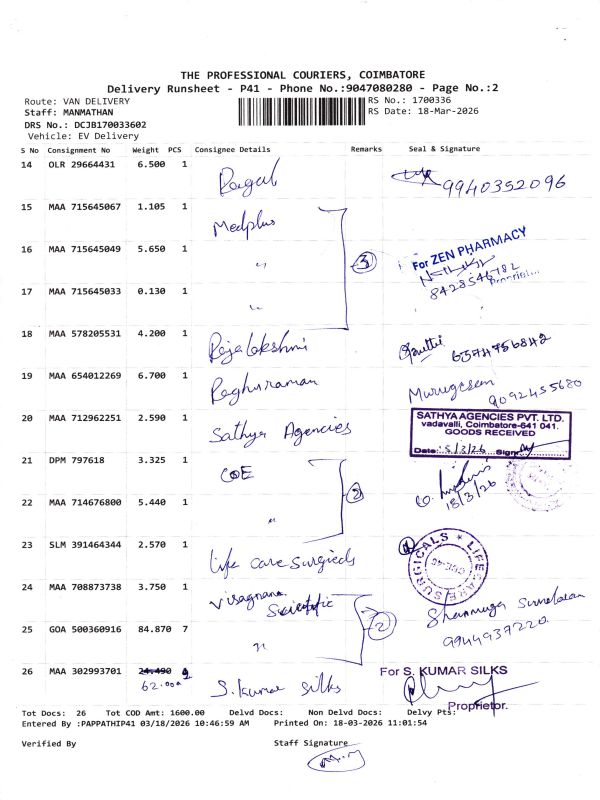 THE PROFESSIONAL COURIERS, COIMBATORE
Delivery Runsheet - P41 - Phone No.:9047080280 - Page No.:2
Route: VAN DELIVERY RS No.: 1700336
Staff: MANMATHAN RS Date: 18-Mar-2026
DRS No.: DCJB170033602
Vehicle: EV Delivery
S No Consignment No Weight PCS Consignee Details Remarks Seal & Signature
14 OLR 29664431 6.500 1 Ragul 9940352096
15 MAA 715645067 1.105 1 Medplus
16 MAA 715645049 5.650 1 " 3 For ZEN PHARMACY
8428546782
17 MAA 715645033 0.130 1 "
18 MAA 578205531 4.200 1 Rajalakshmi 6374756842
19 MAA 654012269 6.700 1 Raghuraman Murugesan
9092455680
20 MAA 712962251 2.590 1 Sathya Agencies
SATHYA AGENCIES PVT. LTD.
vadavalli, Coimbatore-641 041.
GOODS RECEIVED
Date: Sign
21 DPM 797618 3.325 1 COE 2
18/3/26
22 MAA 714676800 5.440 1 "
23 SLM 391464344 2.570 1 Life Care Surgicals
LIFE CARE SURGICALS
24 MAA 708873738 3.750 1 Visagnana
Scientific 2 Shanmuga
25 GOA 500360916 84.870 7 " 9944937220
26 MAA 302993701 24.490 2 S. Kumar Silks
62.000
For S. KUMAR SILKS
Proprietor.
Tot Docs: 26 Tot COD Amt: 1600.00 Delvd Docs: Non Delvd Docs: Delvy Pts:
Entered By :PAPPATHIP41 03/18/2026 10:46:59 AM Printed On: 18-03-2026 11:01:54
Verified By Staff Signature